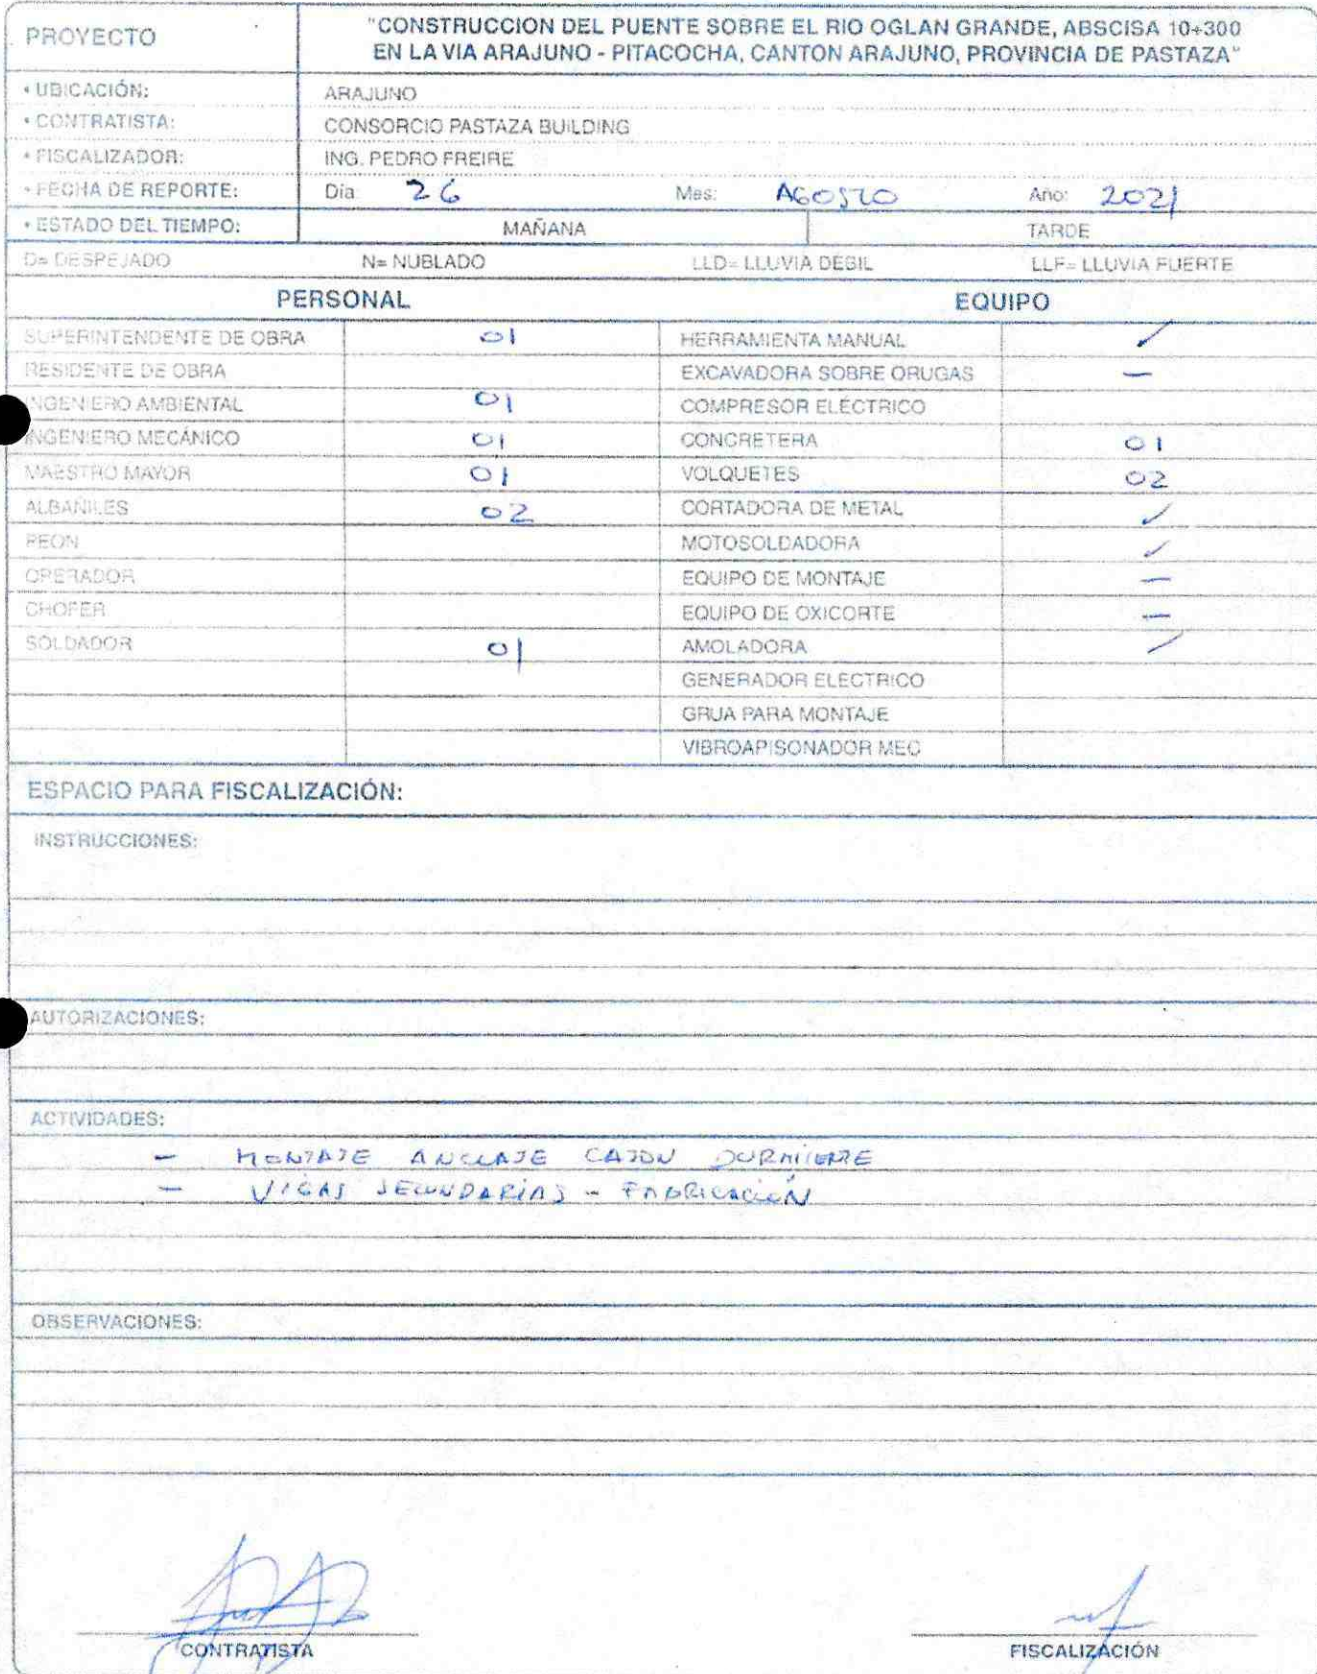 PROYECTO
"CONSTRUCCION DEL PUENTE SOBRE EL RIO OGLAN GRANDE, ABSCISA 10+300
EN LA VIA ARAJUNO - PITACOCHA, CANTON ARAJUNO, PROVINCIA DE PASTAZA"
• UBICACIÓN: ARAJUNO
• CONTRATISTA: CONSORCIO PASTAZA BUILDING
• FISCALIZADOR: ING. PEDRO FREIRE
• FECHA DE REPORTE: Día 26 Mes: AGOSTO Año: 2021
• ESTADO DEL TIEMPO: MAÑANA TARDE
D= DESPEJADO N= NUBLADO LLD= LLUVIA DEBIL LLF= LLUVIA FUERTE
PERSONAL EQUIPO
SUPERINTENDENTE DE OBRA 01 HERRAMIENTA MANUAL ✓
RESIDENTE DE OBRA EXCAVADORA SOBRE ORUGAS —
INGENIERO AMBIENTAL 01 COMPRESOR ELÉCTRICO
INGENIERO MECÁNICO 01 CONCRETERA 01
MAESTRO MAYOR 01 VOLQUETES 02
ALBAÑILES 02 CORTADORA DE METAL ✓
PEON MOTOSOLDADORA ✓
OPERADOR EQUIPO DE MONTAJE —
CHOFER EQUIPO DE OXICORTE —
SOLDADOR 01 AMOLADORA ✓
GENERADOR ELECTRICO
GRUA PARA MONTAJE
VIBROAPISONADOR MEC
ESPACIO PARA FISCALIZACIÓN:
INSTRUCCIONES:
AUTORIZACIONES:
ACTIVIDADES:
- MONTAJE ANCLAJE CAJON DURMIENTE
- VIGAS SECUNDARIAS - FABRICACIÓN
OBSERVACIONES:
CONTRATISTA FISCALIZACIÓN